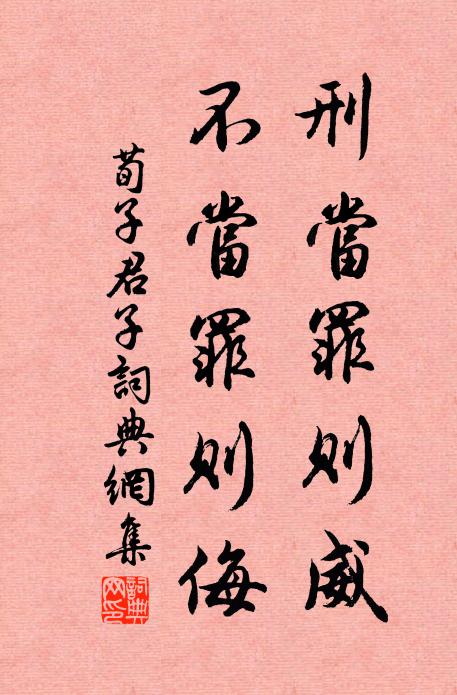 刑當罪則威
不當罪則侮
荀子君子詞典網集
詞典
网印